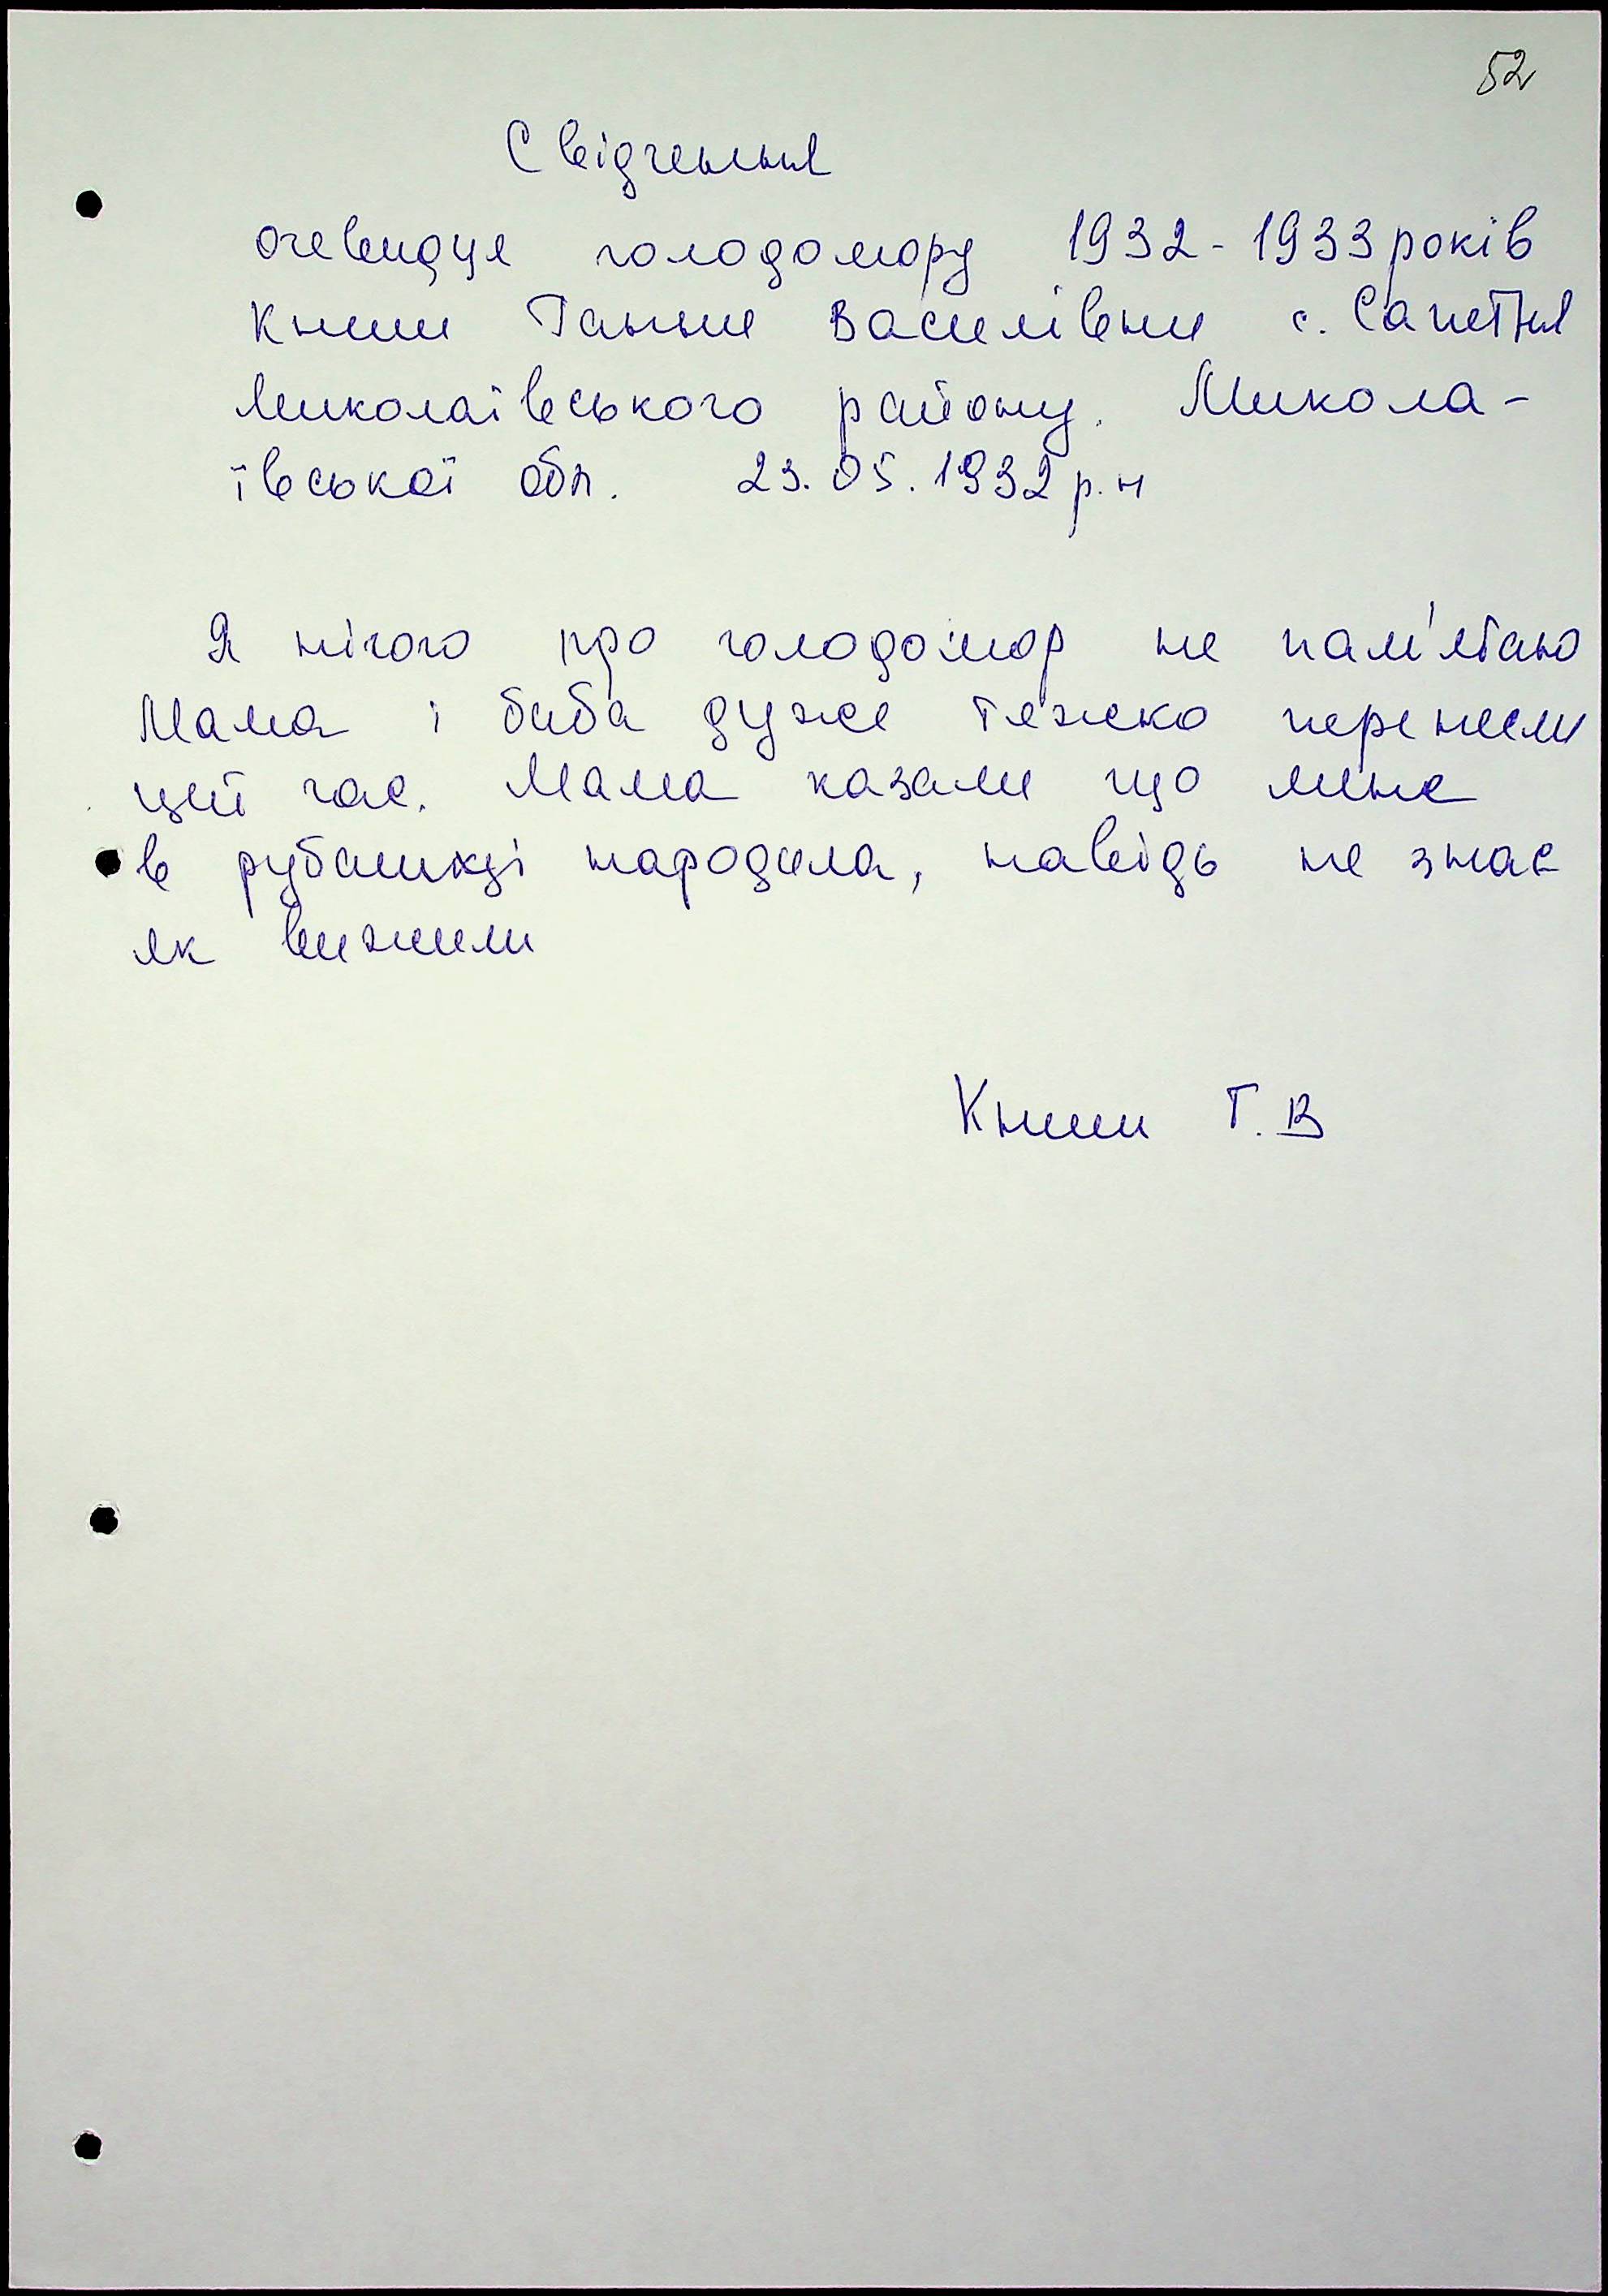 52
Свідчення
очевидця голодомору 1932-1933 років
Книш Ганни Василівни с. Сапетня
Миколаївського району. Микола-
ївської обл. 23.05.1932 р.н
Я нічого про голодомор не пам'ятаю
Мама і баба дуже тяжко перенесли
цей час. Мама казали що мене
в рубашкі народила, навідь не знає
як вижили
Книш Г.В